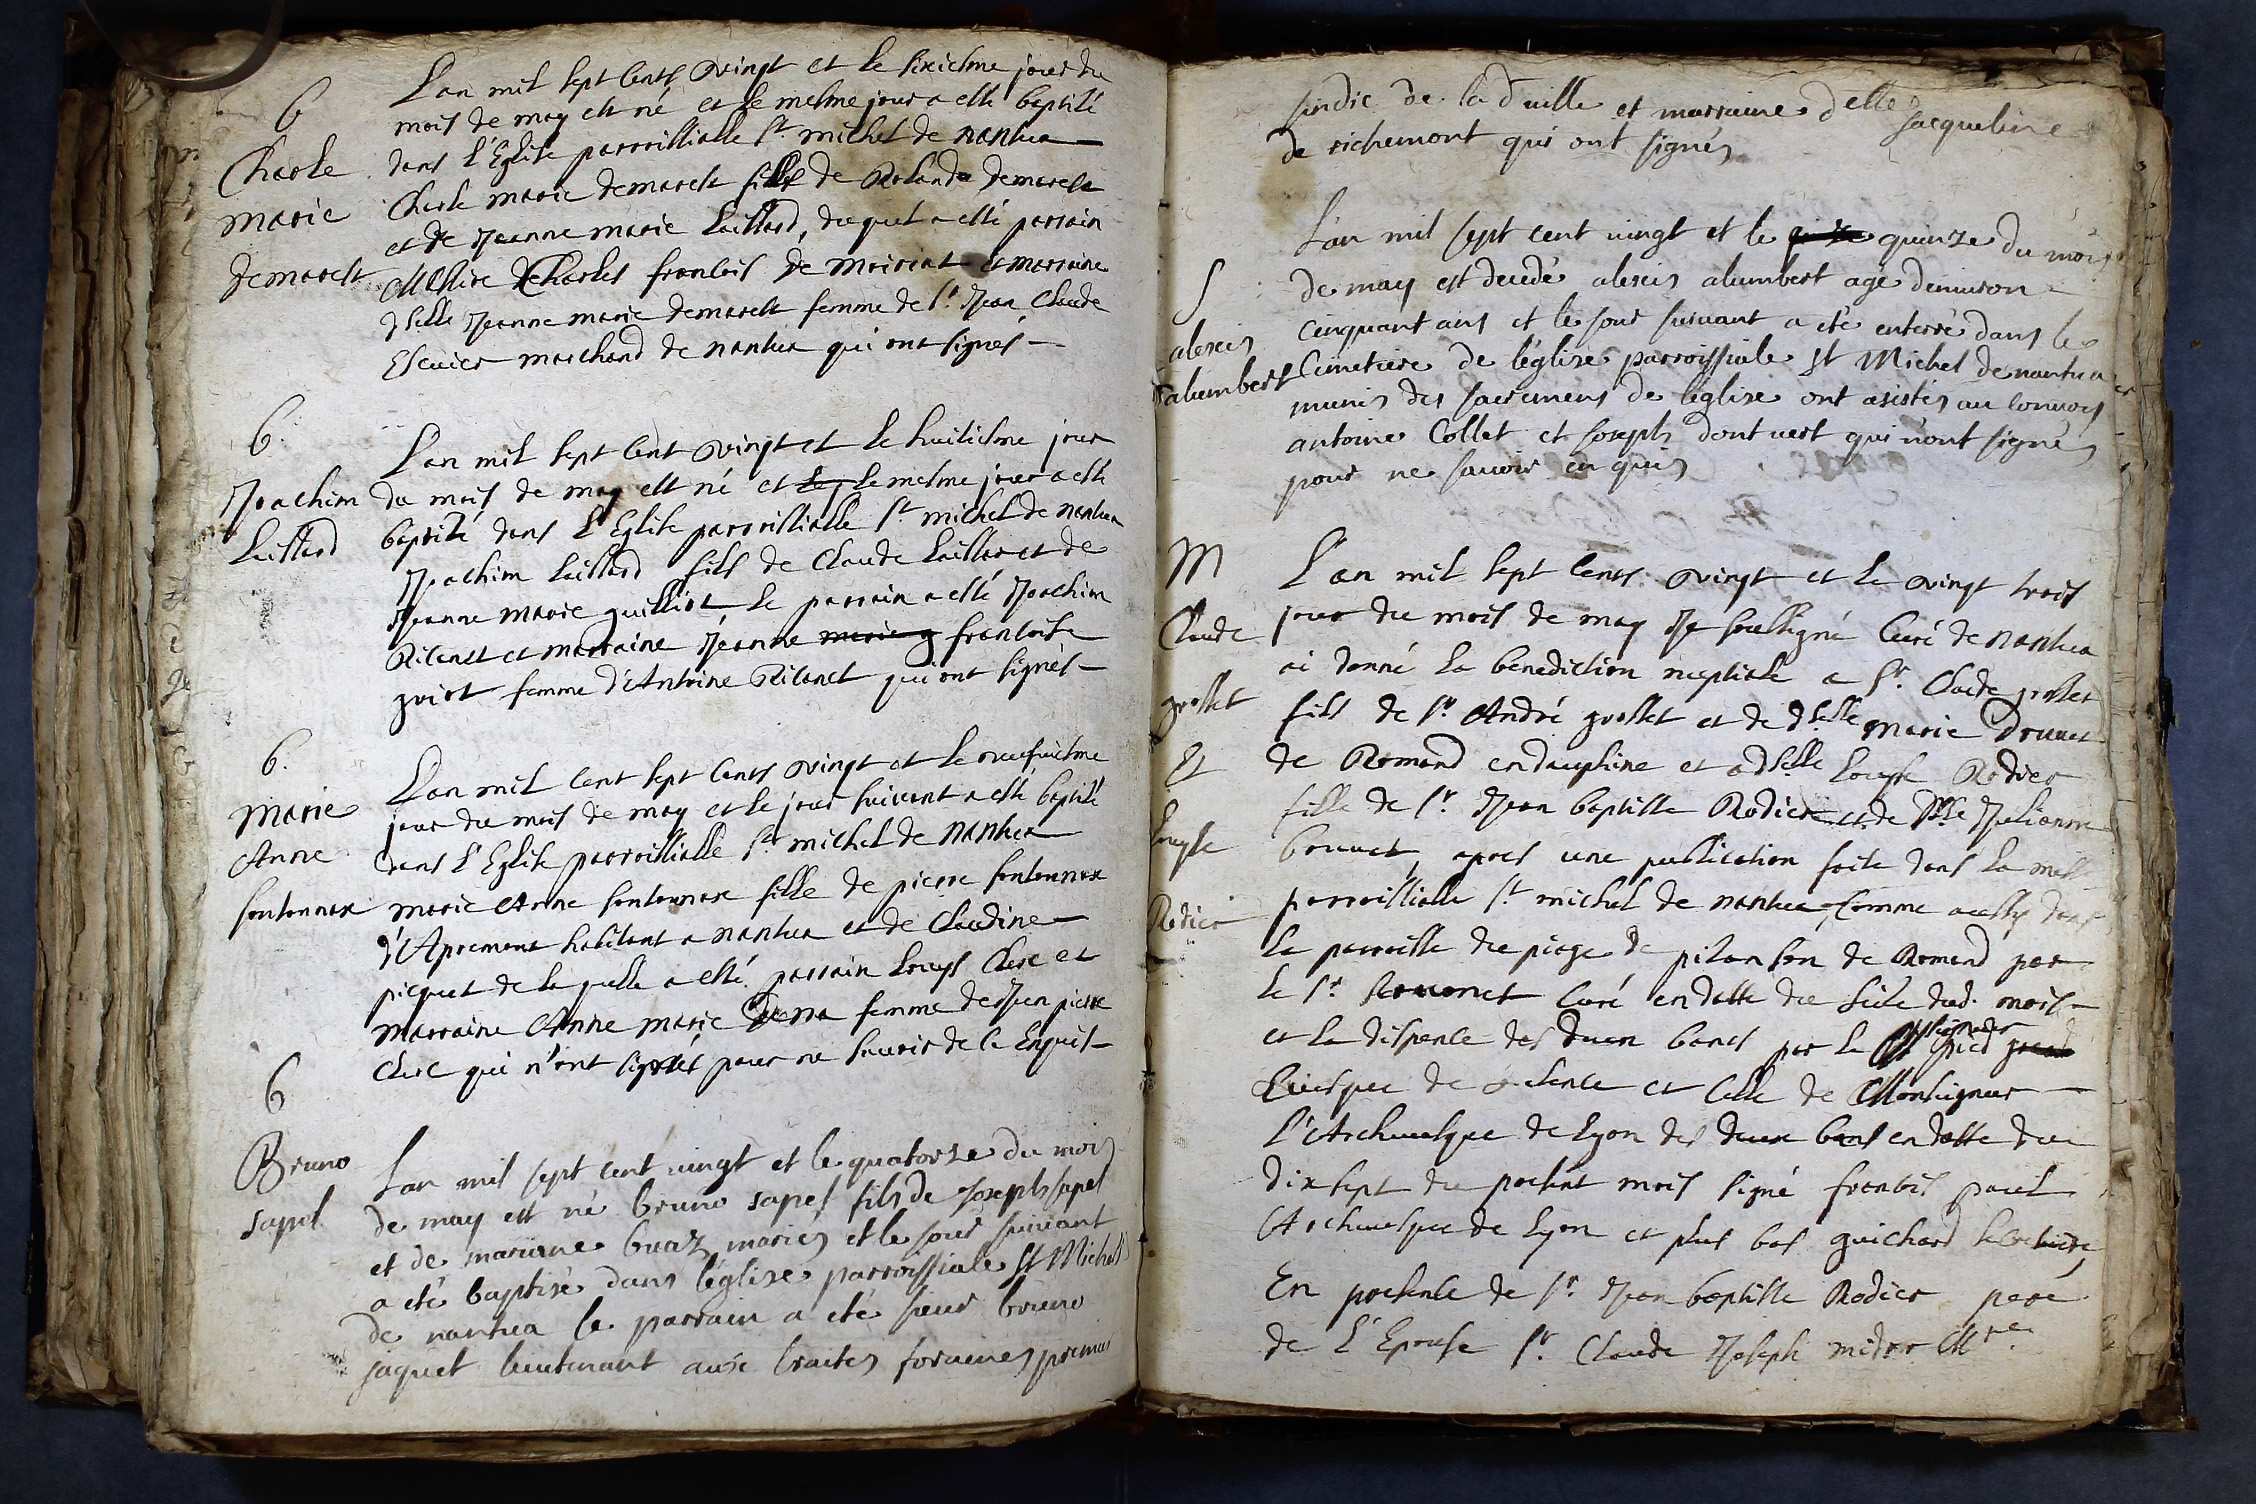 B
Charle
marie
demarest
L'an mil sept Cents vingt et le sixiesme jour du
mois de may est né et le mesme jour a esté baptisé
dans l'Eglise parroissialle St michel de nantua
Charle marie demarest fils de Roland demarest
et de Jeanne marie Laillard, duquel a esté parrain
Messire Charles francois de moiriat et marraine
dselle Jeanne marie demarest femme de Sr. Jean Claude
Escuier marchand de nantua qui ont signés
B.
Joachim
Laillard
L'an mil sept Cent vingt et le huitiesme jour
du mois de may est né et le mesme jour a esté
baptisé dans l'Eglise parroissialle St michel de nantua
Joachim Laillard fils de Claude Laillard et de
Jeanne marie guilliot le parrain a esté Joachim
et marraine Jeanne francoise
guiot femme d'Antoine qui ont signés
B.
marie
Anne
fontennax
L'an mil cent sept Cents vingt et le neufuiesme
jour du mois de may et le jour suivant a esté baptisé
dans l'Eglise parroissialle St michel de nantua
marie Anne fontennax fille de pierre fontennax
d'Apremont habitant a nantua et de Claudine
picquet de laquelle a esté parrain Louys Clerc et
marraine Anne marie femme de Jean pierre
Clerc qui n'ont signés pour ne scavoir de ce Enquis
B
Bruno
sapel
L'an mil sept cent uingt et le quatorze du mois
de may est né bruno sapel fils de joseph sapel
et de mariane buaz mariés et le jour suiuant
a eté baptisé dans léglise parroissiale St Michel
de nantua le parrain a eté sieur bruno
jaquet lieutenant aux traites foraines premier
sindic de lad uille et marraine delle jacqueline
de richemont qui ont signés
S
alexis
alumbert
L'an mil sept cent uingt et le quinze du mois
de may est decedé alexis alumbert agé denuiron
cinquant ans et le jour suiuant a eté enterré dans le
Cimetiere de léglise parroissiale St Michel de nantua
munis des sacremens de léglise ont asistés au conuoy
antoine Collet et joseph dont uert qui n'ont signés
pour ne sauoir enquis
M
Claude
grosset
Et
Louyse
Rodier
L'an mil sept Cents vingt et le vingt trois
jour du mois de may Je soussigné Curé de nantua
ai donné la benediction nuptiale a Sr. Claude grosset
fils de Sr. André grosset et de dselle marie Drunet
de Romand en dauphine et a dselle Louyse Rodier
fille de Sr. Jean baptiste Rodier et de Dlle Julienne
bouvet, apres une publication faite dans la messe
parroissialle St michel de nantua, Comme aussy dans
la parroisse du piege de pisanson de Romand par
le Sr. Curé en datte du seize dud. mois
et la dispence des deux bancs par le
Euesque de valence et Celle de Monseigneur
l'Archeuesque de Lyon des deux bans en datte du
dixsept du present mois signé francois paul
Archeuesque de Lyon et plus bas guichard secretaire,
En presence de Sr. Jean baptiste Rodier pere
de l'Epouse Sr. Claude Joseph midor Mre